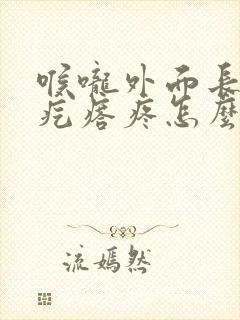 喉嚨外面長
疙瘩疼怎麼
流嫣然